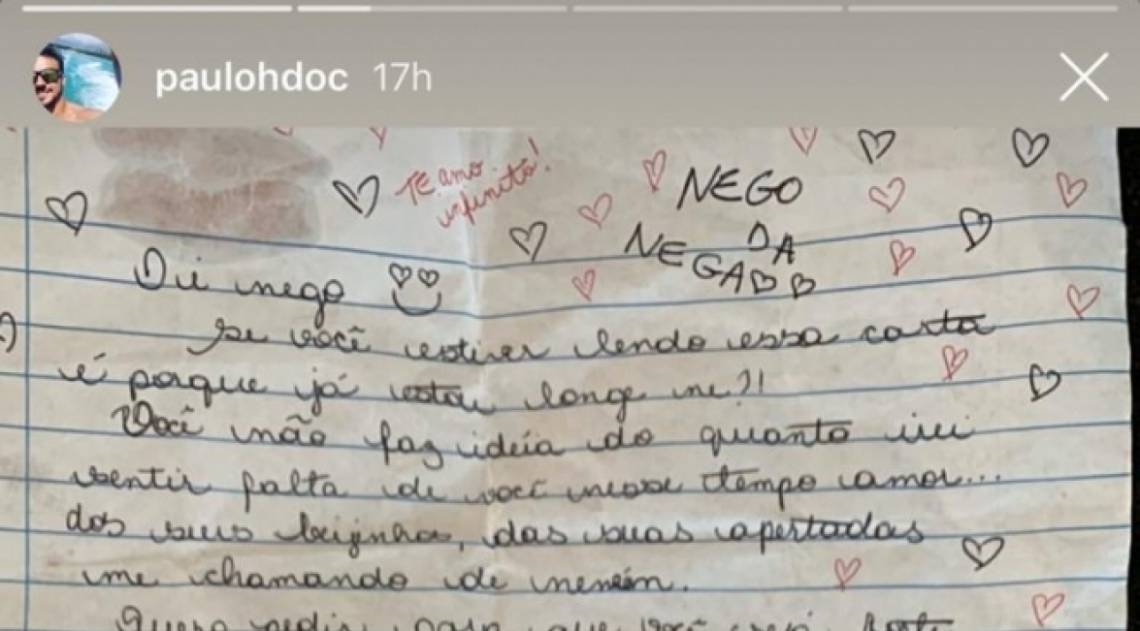 paulohdoc 17h
Te amo
infinito!
NEGO
DA
NEGA
Oi nego
se você estiver lendo essa carta
é porque já estou longe né?!
Você não faz idéia do quanto irei
sentir falta de você nesse tempo amor...
dos seus beijinhos, das suas apertadas
me chamando de neném.
Quero pedir para que você seja forte